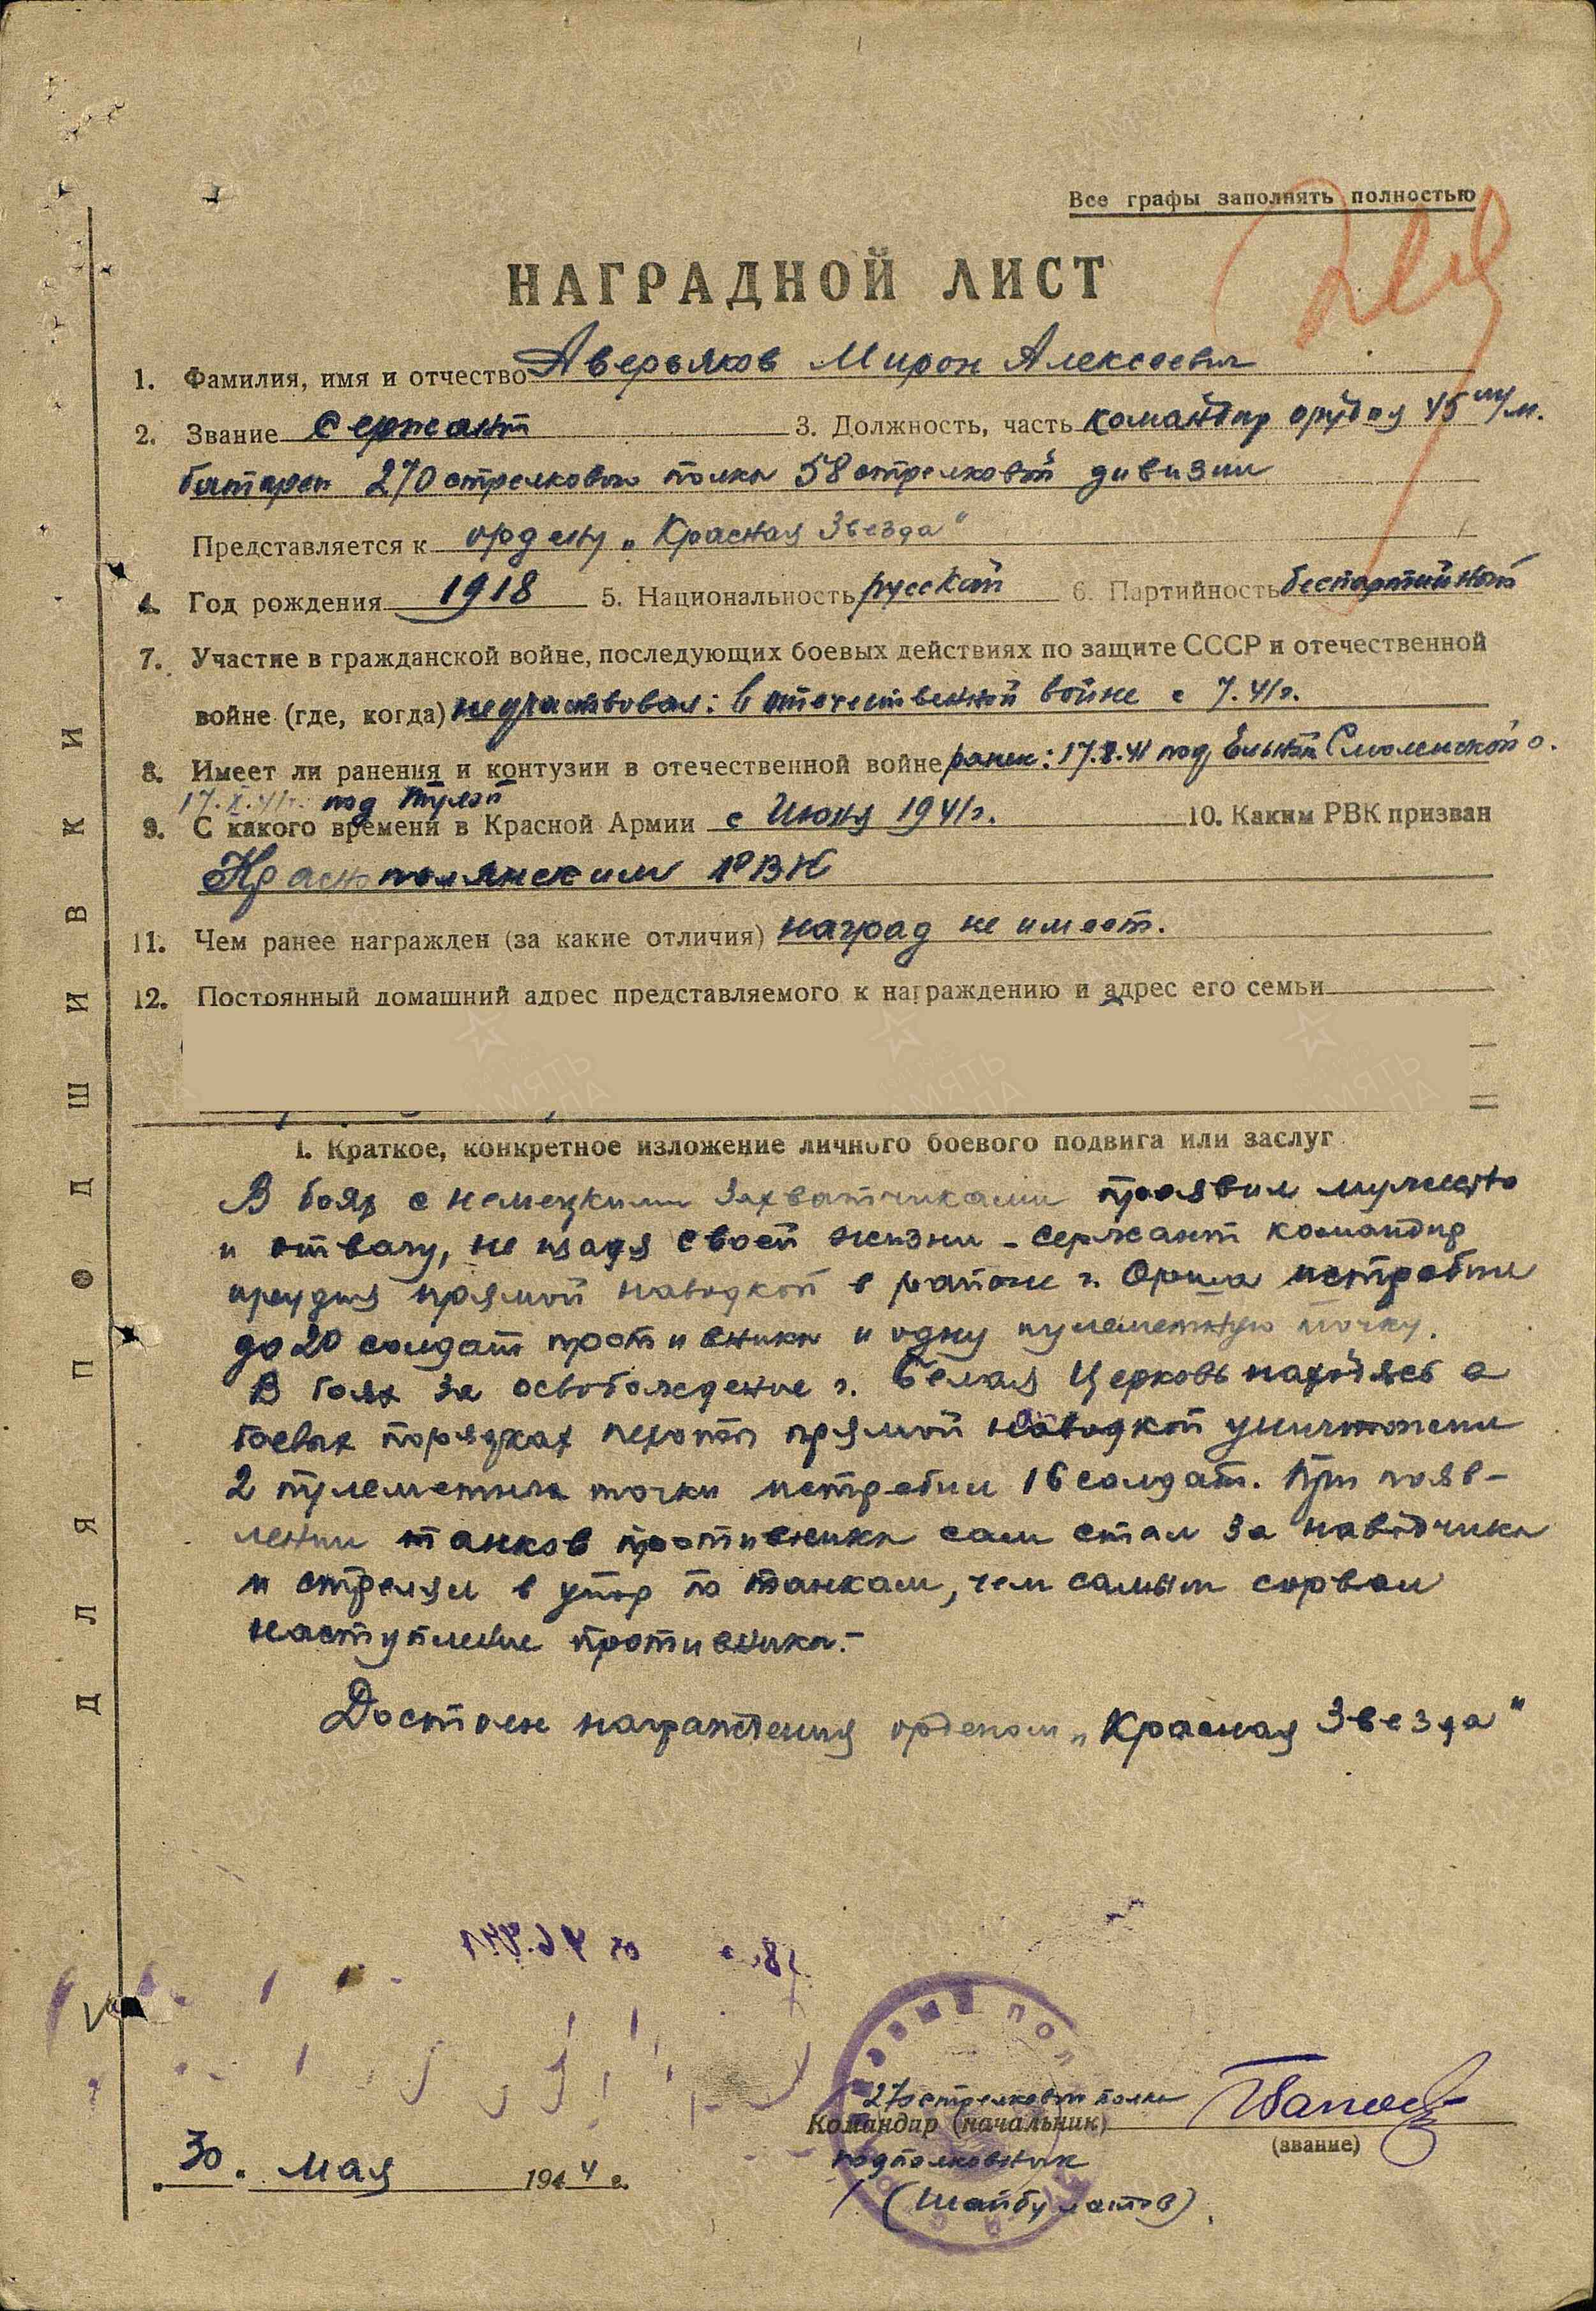 Все графы заполнять полностью
НАГРАДНОЙ ЛИСТ
1. Фамилия, имя и отчество Аверьяков Мирон Алексеевич
2. Звание сержант 3. Должность, часть командир орудия 45 м/м.
батареи 270 стрелкового полка 58 стрелковой дивизии
Представляется к ордену „Красная Звезда"
4. Год рождения 1918 5. Национальность русский 6. Партийность беспартийный
7. Участие в гражданской войне, последующих боевых действиях по защите СССР и отечественной
войне (где, когда) не участвовал: в отечественной войне с 7.41г.
8. Имеет ли ранения и контузии в отечественной войне ранен: под Ельней Смоленской о.
17.X.41г. под Тулой
9. С какого времени в Красной Армии с Июня 1941г. 10. Каким РВК призван
Краснополянским РВК
11. Чем ранее награжден (за какие отличия) наград не имеет.
12. Постоянный домашний адрес представляемого к награждению и адрес его семьи
I. Краткое, конкретное изложение личного боевого подвига или заслуг
В боях с немецкими захватчиками проявил мужество
и отвагу, не щадя своей жизни - сержант командир
орудия прямой наводкой в районе г. Орша истребил
до 20 солдат противника и одну пулеметную точку.
В боях за освобождение г. Белая Церковь находясь в
боевых порядках пехоты прямой наводкой уничтожил
2 пулеметных точки истребил 16 солдат. При появ-
лении танков противника сам стал за наводчика
и стрелял в упор по танкам, чем самым сорвал
наступление противника.-
Достоин награждения орденом „Красная Звезда"
270 стрелкового полка
Командир (начальник)
(звание)
подполковник
(Шайбулатов)
30. мая 1944 г.
ДЛЯ ПОДШИВКИ